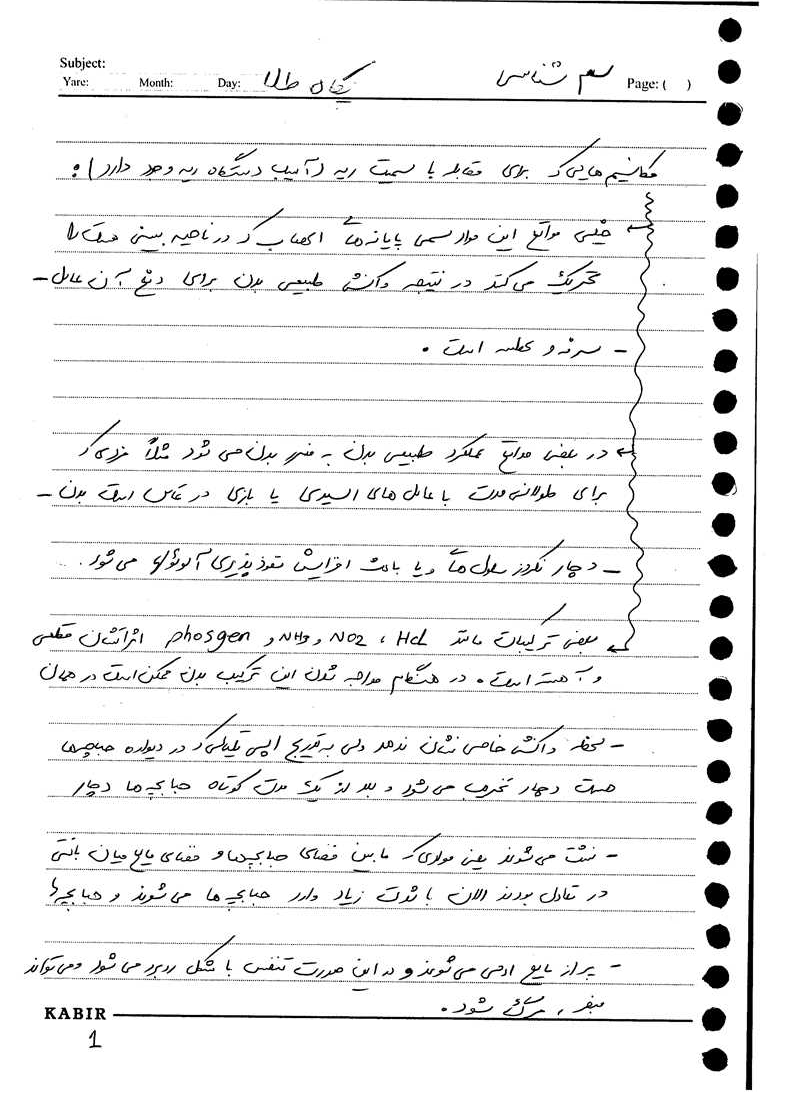 Subject:
Yare: Month: Day: پگاه طلا سم شناسی Page: ( )
مکانیسم هایی که برای مقابله با سمیت ریه (آسیب دستگاه ریه وجود دارد):
خیلی مواقع این مواد سمی پایانه های اعصاب که در ناحیه بینی هست را
تحریک می کند در نتیجه واکنش طبیعی بدن برای دفع آن عامل -
- سرفه و عطسه است.
در بعضی مواقع عملکرد طبیعی بدن به ضرر بدن می شود مثلاً فردی که
برای طولانی مدت با عامل های اسیدی یا بازی در تماس است بدن -
- دچار نکروز سلول ها و یا باعث افزایش نفوذپذیری آلوئول می شود.
بعضی ترکیبات مانند HCl ، NO2 و NH3 و phosgen اثراتشان قطعی
و آهسته است. در هنگام مواجه شدن این ترکیب بدن ممکن است در همان
- لحظه واکنش خاصی نشان ندهد ولی به تدریج اپی تلیالی که در دیواره حبابچه ها
هست دچار تخریب می شود و بعد از یک مدت کوتاه حبابچه ها دچار
- نشت می شوند یعنی موادی که مابین فضای حبابچه ها و فضای مایع میان بافتی
در تعادل بودند الان با شدت زیاد وارد حبابچه ها می شوند و حبابچه ها
- پر از مایع ادمی می شوند و در این صورت تنفس با مشکل روبرو می شود و می تواند
منجر به مرگ شود.
KABIR
1